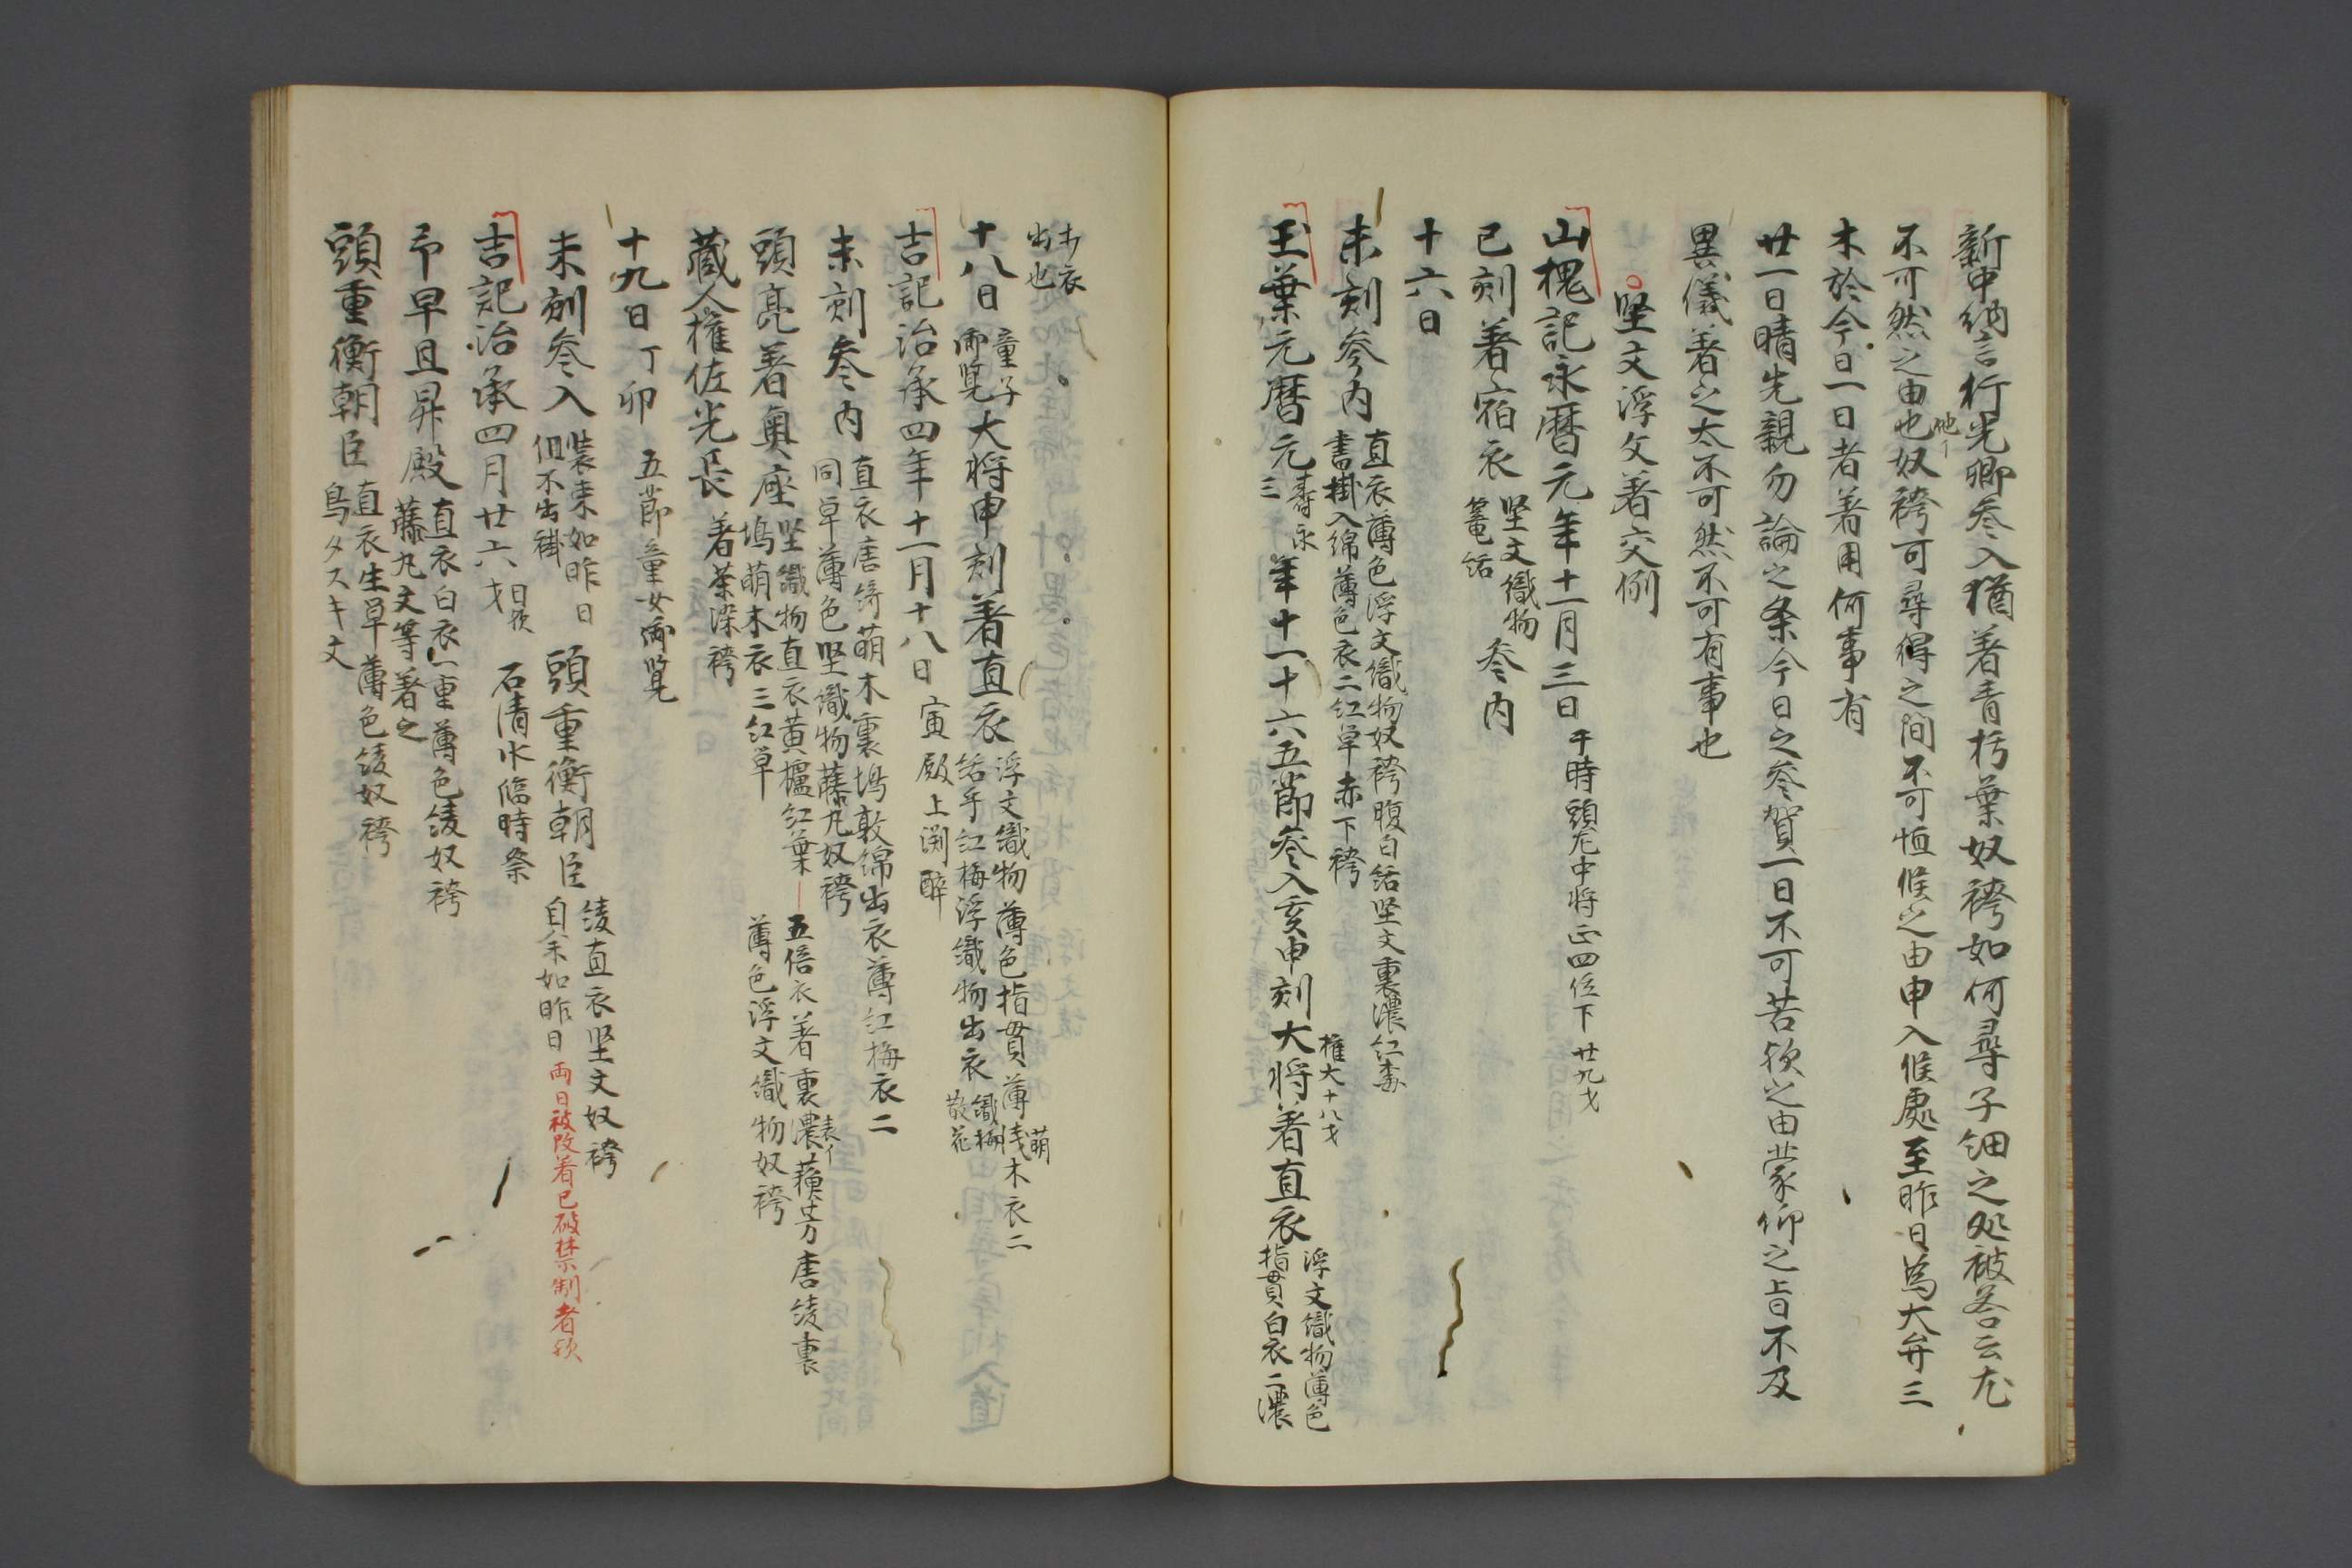 新中納言行光卿参入猶着青朽葉奴袴如何尋子細之処被答云尤
不可然之由也奴袴可尋得之間不可恒候之由申入候處至昨日為大弁三
他イ
木於今日一日者着用何事有
廿一日晴先親勿論之条今日之参賀一日不可苦欤之由蒙仰之上旨不及
異儀着之太不可然不可有事也
堅文浮文着交例
山槐記永暦元年十一月三日 于時頭左中将正四位下 廿九才
巳刻着宿衣 堅文織物 参内
十六日
未刻参内 直衣薄色浮文織物奴袴腹白括堅文裏濃紅
書掛入綿薄色衣二紅単赤下袴
玉葉元暦元 寿永三 年十一十六五節参入亥申刻大将着直衣 浮文織物薄色
指貫白衣二濃
権大十八才
打衣
出也
十八日 童子御覧 大将申刻着直衣 浮文織物薄色指貫薄 萌木衣二
括乎紅梅浮織物出衣 織梅散花
吉記治承四年十一月十八日 寅 殿上淵酔
未刻参内 直衣唐綺萌木裏塢敦綿出衣薄紅梅衣二
同単薄色堅織物藤丸奴袴
頭亮着奥座 堅織物直衣黄櫨紅葉 五倍衣着裏濃蘇芳唐綾裏
表イ
塢萌木衣三紅単 薄色浮文織物奴袴
蔵人権佐光長 着葉深袴
十九日 丁卯 五節童女御覧
未刻参入 装束如昨日 但不出褂 頭重衡朝臣 綾直衣堅文奴袴
自余如昨日 両日被改着已破禁制者欤
吉記治承四月廿六 石清水臨時祭
予早旦昇殿 直衣白衣一重薄色綾奴袴
藤丸文等着之
頭重衡朝臣 直衣生単薄色綾奴袴
鳥タスキ文